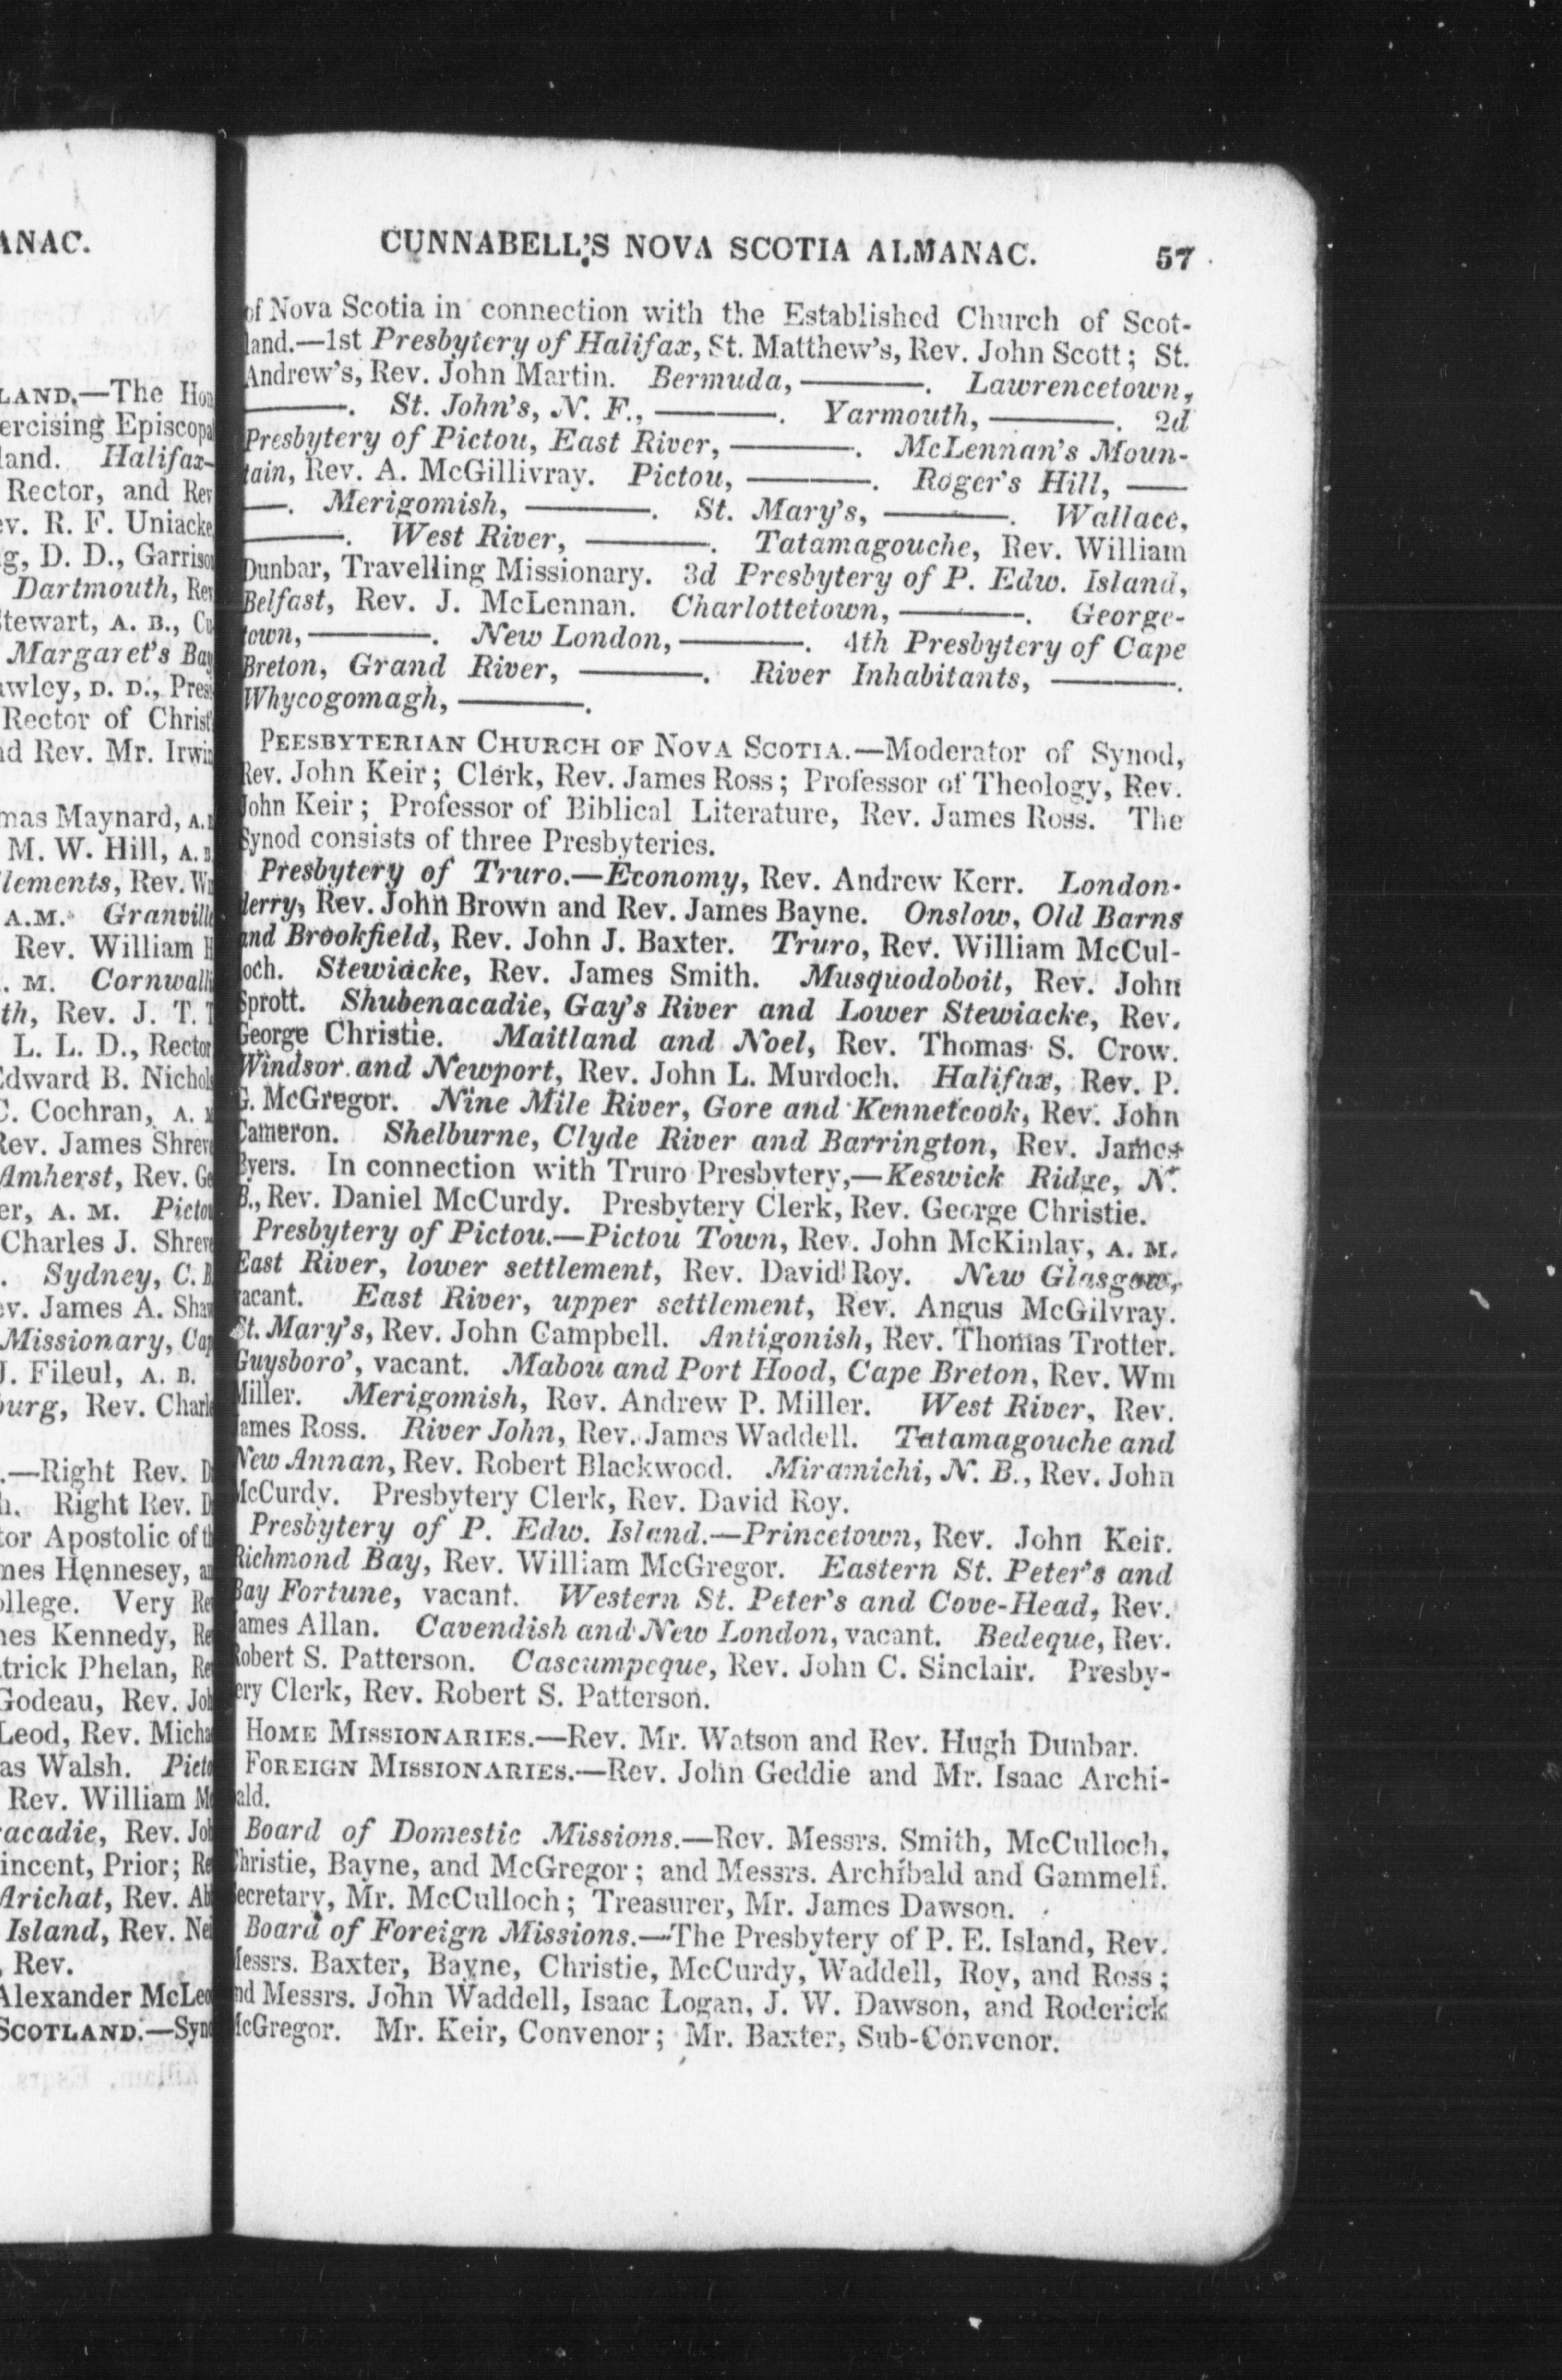 ANAC.
LAND.—The Hon
ercising Episcopa
land. Halifax-
Rector, and Rev
ev. R. F. Uniacke,
g, D. D., Garrison
Dartmouth, Rev
Stewart, A. B., Cu
Margaret's Bay
awley, D. D., Pres
Rector of Christ'
nd Rev. Mr. Irwin
mas Maynard, A.
M. W. Hill, A. B
lements, Rev. Wm
A.M. Granville
Rev. William H
. M. Cornwalli
th, Rev. J. T. T
L. L. D., Rector
Edward B. Nichol
C. Cochran, A. M
Rev. James Shreve
Amherst, Rev. Ge
er, A. M. Pictou
Charles J. Shreve
. Sydney, C. B
ev. James A. Shaw
Missionary, Cap
J. Fileul, A. B.
burg, Rev. Charle
.—Right Rev. D
h. Right Rev. D
tor Apostolic of th
mes Hennesey, an
ollege. Very Rev
nes Kennedy, Re
trick Phelan, Rev
Godeau, Rev. Joh
Leod, Rev. Micha
as Walsh. Picto
Rev. William Mc
racadie, Rev. Joh
incent, Prior; Re
Arichat, Rev. Ab
Island, Rev. Nei
, Rev.
Alexander McLeo
SCOTLAND.—Syno
CUNNABELL'S NOVA SCOTIA ALMANAC. 57
of Nova Scotia in connection with the Established Church of Scot-
land.—1st Presbytery of Halifax, St. Matthew's, Rev. John Scott; St.
Andrew's, Rev. John Martin. Bermuda, ———. Lawrencetown,
———. St. John's, N. F., ———. Yarmouth, ———. 2d
Presbytery of Pictou, East River, ———. McLennan's Moun-
tain, Rev. A. McGillivray. Pictou, ———. Roger's Hill, ——
—. Merigomish, ———. St. Mary's, ———. Wallace,
———. West River, ———. Tatamagouche, Rev. William
Dunbar, Travelling Missionary. 3d Presbytery of P. Edw. Island,
Belfast, Rev. J. McLennan. Charlottetown, ———. George-
town, ———. New London, ———. 4th Presbytery of Cape
Breton, Grand River, ———. River Inhabitants, ———.
Whycogomagh, ———.
PEESBYTERIAN CHURCH OF NOVA SCOTIA.—Moderator of Synod,
Rev. John Keir; Clerk, Rev. James Ross; Professor of Theology, Rev.
John Keir; Professor of Biblical Literature, Rev. James Ross. The
Synod consists of three Presbyteries.
Presbytery of Truro.—Economy, Rev. Andrew Kerr. London-
derry, Rev. John Brown and Rev. James Bayne. Onslow, Old Barns
and Brookfield, Rev. John J. Baxter. Truro, Rev. William McCul-
loch. Stewiacke, Rev. James Smith. Musquodoboit, Rev. John
Sprott. Shubenacadie, Gay's River and Lower Stewiacke, Rev.
George Christie. Maitland and Noel, Rev. Thomas S. Crow.
Windsor and Newport, Rev. John L. Murdoch. Halifax, Rev. P.
G. McGregor. Nine Mile River, Gore and Kennetcook, Rev. John
Cameron. Shelburne, Clyde River and Barrington, Rev. James
Byers. In connection with Truro Presbytery,—Keswick Ridge, N.
B., Rev. Daniel McCurdy. Presbytery Clerk, Rev. George Christie.
Presbytery of Pictou.—Pictou Town, Rev. John McKinlay, A. M.
East River, lower settlement, Rev. David Roy. New Glasgow,
vacant. East River, upper settlement, Rev. Angus McGilvray.
St. Mary's, Rev. John Campbell. Antigonish, Rev. Thomas Trotter.
Guysboro', vacant. Mabou and Port Hood, Cape Breton, Rev. Wm
Miller. Merigomish, Rev. Andrew P. Miller. West River, Rev.
James Ross. River John, Rev. James Waddell. Tatamagouche and
New Annan, Rev. Robert Blackwood. Miramichi, N. B., Rev. John
McCurdy. Presbytery Clerk, Rev. David Roy.
Presbytery of P. Edw. Island.—Princetown, Rev. John Keir.
Richmond Bay, Rev. William McGregor. Eastern St. Peter's and
Bay Fortune, vacant. Western St. Peter's and Cove-Head, Rev.
James Allan. Cavendish and New London, vacant. Bedeque, Rev.
Robert S. Patterson. Cascumpeque, Rev. John C. Sinclair. Presby-
ery Clerk, Rev. Robert S. Patterson.
HOME MISSIONARIES.—Rev. Mr. Watson and Rev. Hugh Dunbar.
FOREIGN MISSIONARIES.—Rev. John Geddie and Mr. Isaac Archi-
ald.
Board of Domestic Missions.—Rev. Messrs. Smith, McCulloch,
Christie, Bayne, and McGregor; and Messrs. Archibald and Gammell.
Secretary, Mr. McCulloch; Treasurer, Mr. James Dawson.
Board of Foreign Missions.—The Presbytery of P. E. Island, Rev.
Messrs. Baxter, Bayne, Christie, McCurdy, Waddell, Roy, and Ross;
nd Messrs. John Waddell, Isaac Logan, J. W. Dawson, and Roderick
McGregor. Mr. Keir, Convenor; Mr. Baxter, Sub-Convenor.